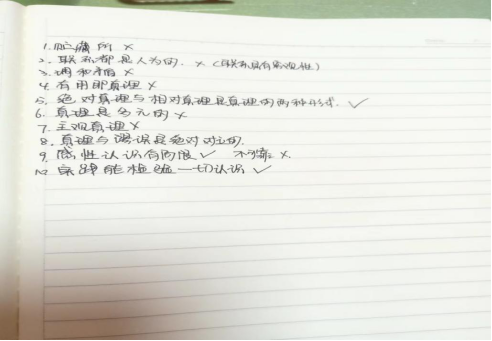 1. 贮藏所 ×
2. 联系都是人为的. × (联系具有客观性)
3. 调和 ×
4. 有用即真理 ×
5. 绝对真理与相对真理是真理的两种形式. ✓
6. 真理是多元的 ×
7. 主观真理 ×
8. 真理与谬误是绝对对立的.
9. 感性认识有局限 ✓ 不可靠 ×.
10. 实践能检验一切认识 ✓